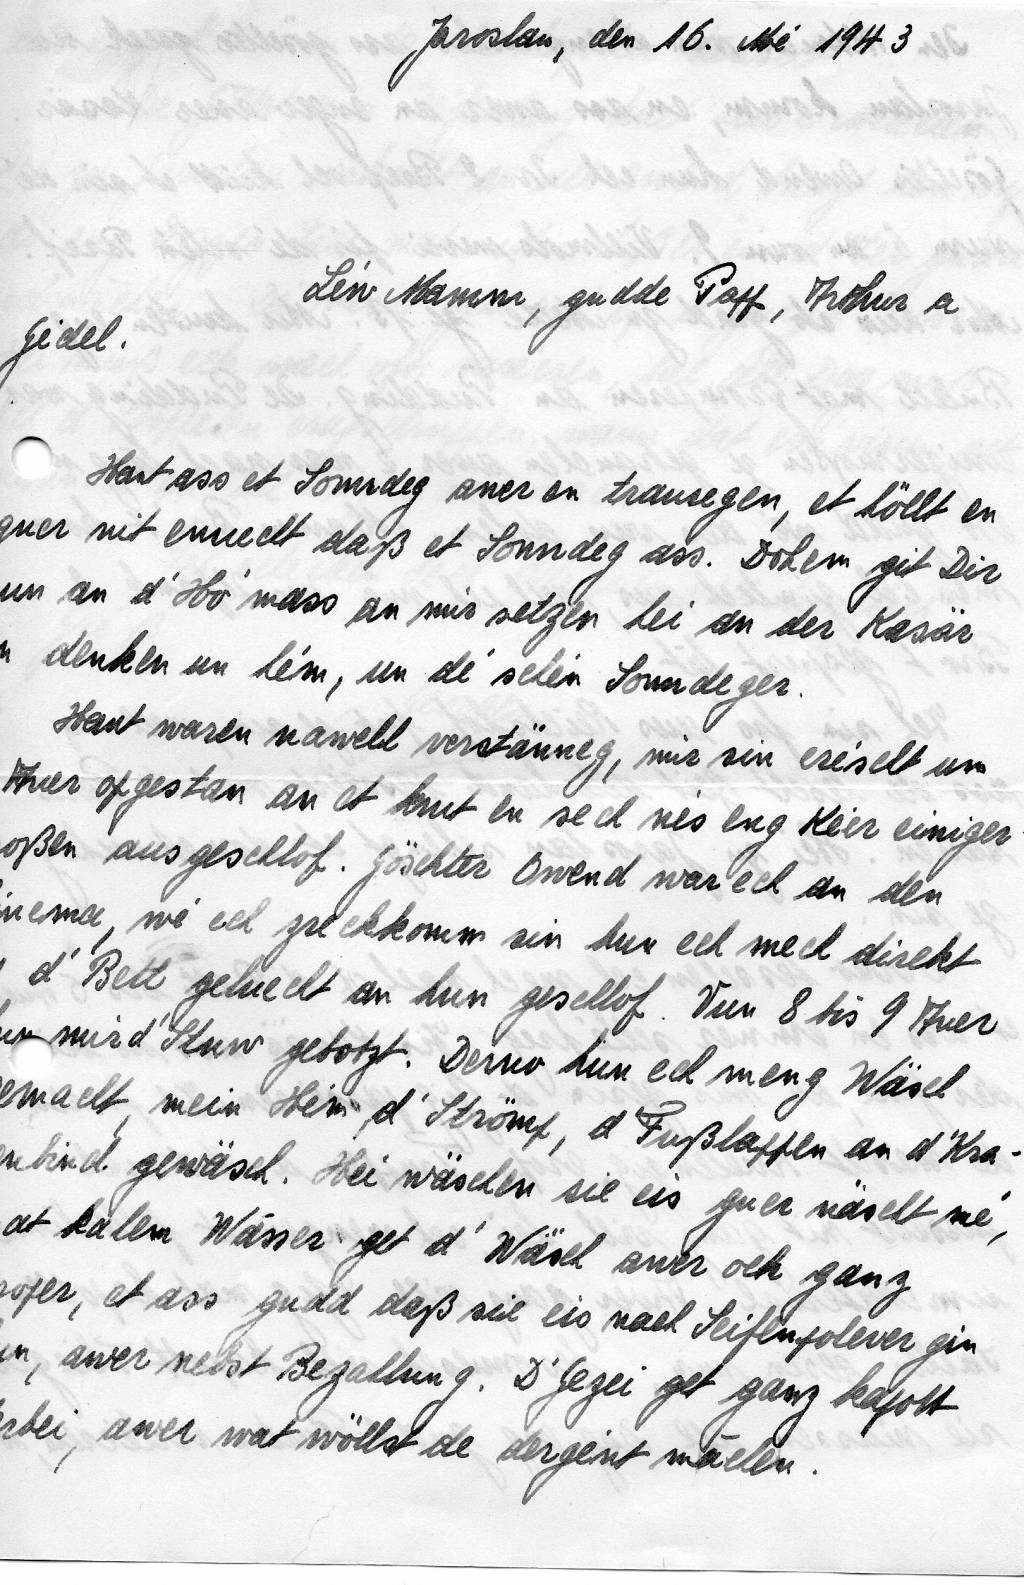 Jaroslau, den 16. Mé 1943
Léiw Mamm, gudde Papp, Arthur a
Gidel.
Haut ass et Sonndeg awer en trauregen, et höllt en
guer nit ennecht daß et Sonndeg ass. Dohem git Dir
un an d'Hó'mass an mir setzen hei an der Kasär
denken un hém, un dé schéin Sonndeger.
Haut waren nawell verstänneg, mir sin eréischt um
Auer opgestan an et hut en sech nés eng Kéier einiger-
oßen ausgeschlof. Göschter Owend war ech an den
inema, wé ech zreckkomm sin hun ech mech direkt
d'Bett geluecht an hun geschlof. Vun 8 bis 9 Auer
hun mir d'Stuw gebotzt. Derno hun ech meng Wäsch
emacht, mein Hém, d'Strömp, d'Fußlappen an d'Kra-
enbind gewäsch. Hei wäschen sie eis guer näischt mé,
at kalem Wässer get d'Wäsch awer och ganz
rofer, et ass gudd daß sie eis nach Seifenpolever gin
un, awer nebst Bezahlung. D'Gezei get ganz kapott
erbei, awer wat wöllst de dergéint mächen.